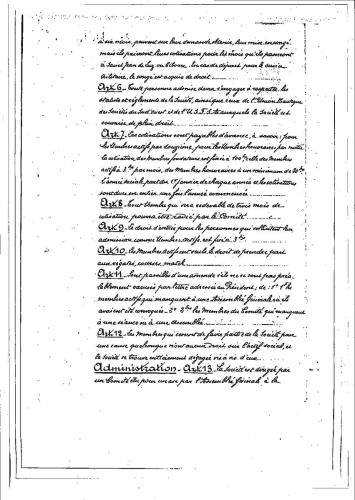 à six mois, peuvent sur leur demande obtenir, leur mise en congé
mais ils paieront leurs cotisations pour les mois qu'ils passeront
à Saint Jean de Luz ou Ciboure. En cas de départ pour le service
militaire, le congé est acquis de droit.
Art 6. - Toute personne admise devra s'engager à respecter les
statuts et règlements de la Société, ainsi que ceux de l'Union Nautique
des Sociétés du Sud-ouest et de l'U.S.F.S. auxquels la Société est
soumise de plein droit.
Art 7. - Les cotisations sont payables d'avance, à savoir: pour
les Membres actifs par douzième, pour les Membres honoraires par moitié
la cotisation des Membres fondateurs est fixée à 100 celle des Membres
actifs à 3 par mois, des Membres honoraires à un minimum de 20
L'année sociale, part du 1er janvier de chaque année et les cotisations
sont dues en entier une fois l'année commencée.
Art 8. - Tout Membre qui sera redevable de trois mois de
cotisation pourra être rayé par le Comité
Art 9. - Le droit d'entrée pour les personnes qui solliciteront leur
admission comme Membres Actifs, est fixé à 3
Art 10. - Les Membres actifs ont le droit de prendre part
aux régates, courses, match
Art 11. - Sont passibles d'une amende s'ils ne se sont pas préa-
lablement excusés par lettre adressée au Président, de: 1° 1 les
membres actifs qui manquent à une Assemblée Générale où ils
avaient été convoqués - 2° les Membres du Comité qui manquent
à une séance ou à une Assemblée
Art 12. - Les Membres qui cessent de faire partie de la Société pour
une cause quelconque n'ont aucun droit sur l'actif social, et
la Société se trouve entièrement dégagée vis à vis d'eux
Administration - Art 13. La Société est dirigée par
un Comité élu pour un an par l'Assemblée Générale à la